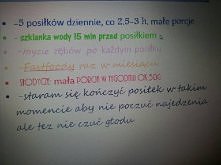 -5 posiłków dziennie, co 2,5-3 h, małe porcje
- szklanka wody 15 min przed posiłkiem
-mycie zębów po każdym posiłku
-Fastfoody raz w miesiącu
SŁODYCZE: mała PORCJA W TYGODNIU OK 50G
-staram się kończyć posiłek w takim
momencie aby nie poczuć najedzenia
ale też nie czuć głodu